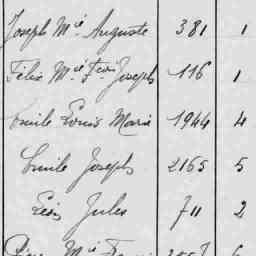 Joseph Mie Auguste 381 1
Félix Mie Fçois Joseph 116 1
Emile Louis Marie 1944 4
Emile Joseph 2165 5
Léon Jules 711 2